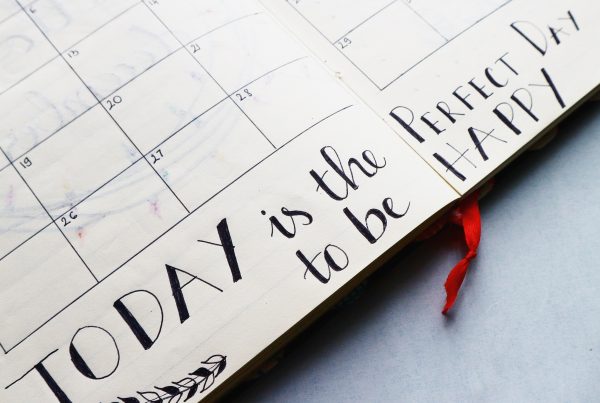 6
13 14
19 20 21
26 27 28
29
TODAY is the PERFECT DAY
to be HAPPY